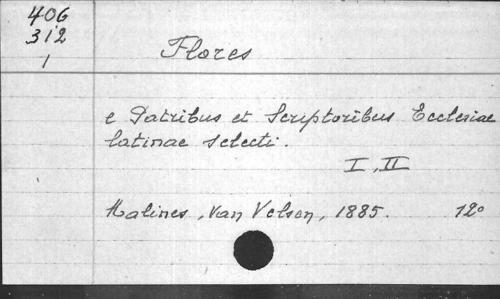 406
312
1
Flores
e Patribus et Scriptoribus Ecclesiae
latinae selecti.
I, II
Malines, Van Velsen, 1885. 12°